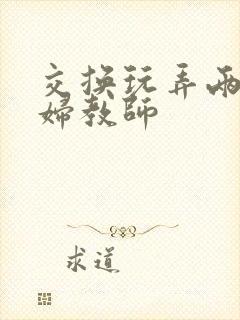 交换玩弄两
婦教師
求道